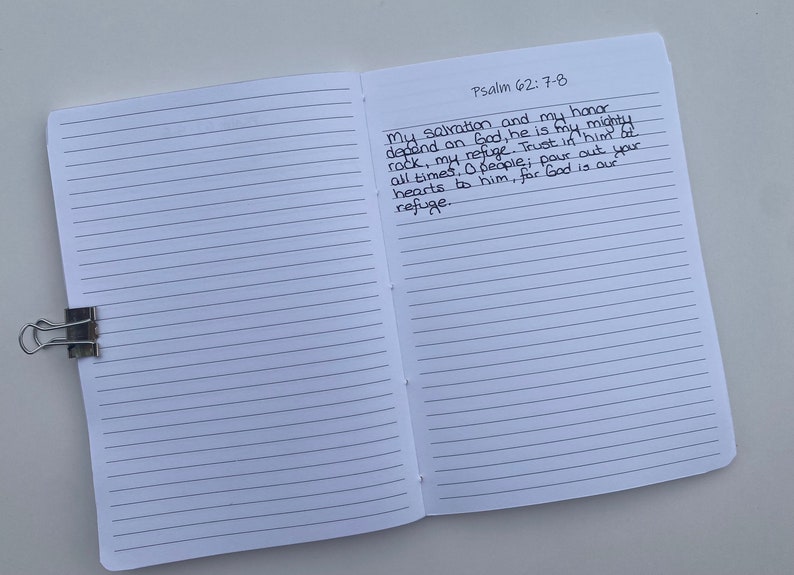 Psalm 62: 7-8
My salvation and my honor
depend on God, he is my mighty
rock, my refuge. Trust in him at
all times, O people; pour out your
hearts to him, for God is our
refuge.